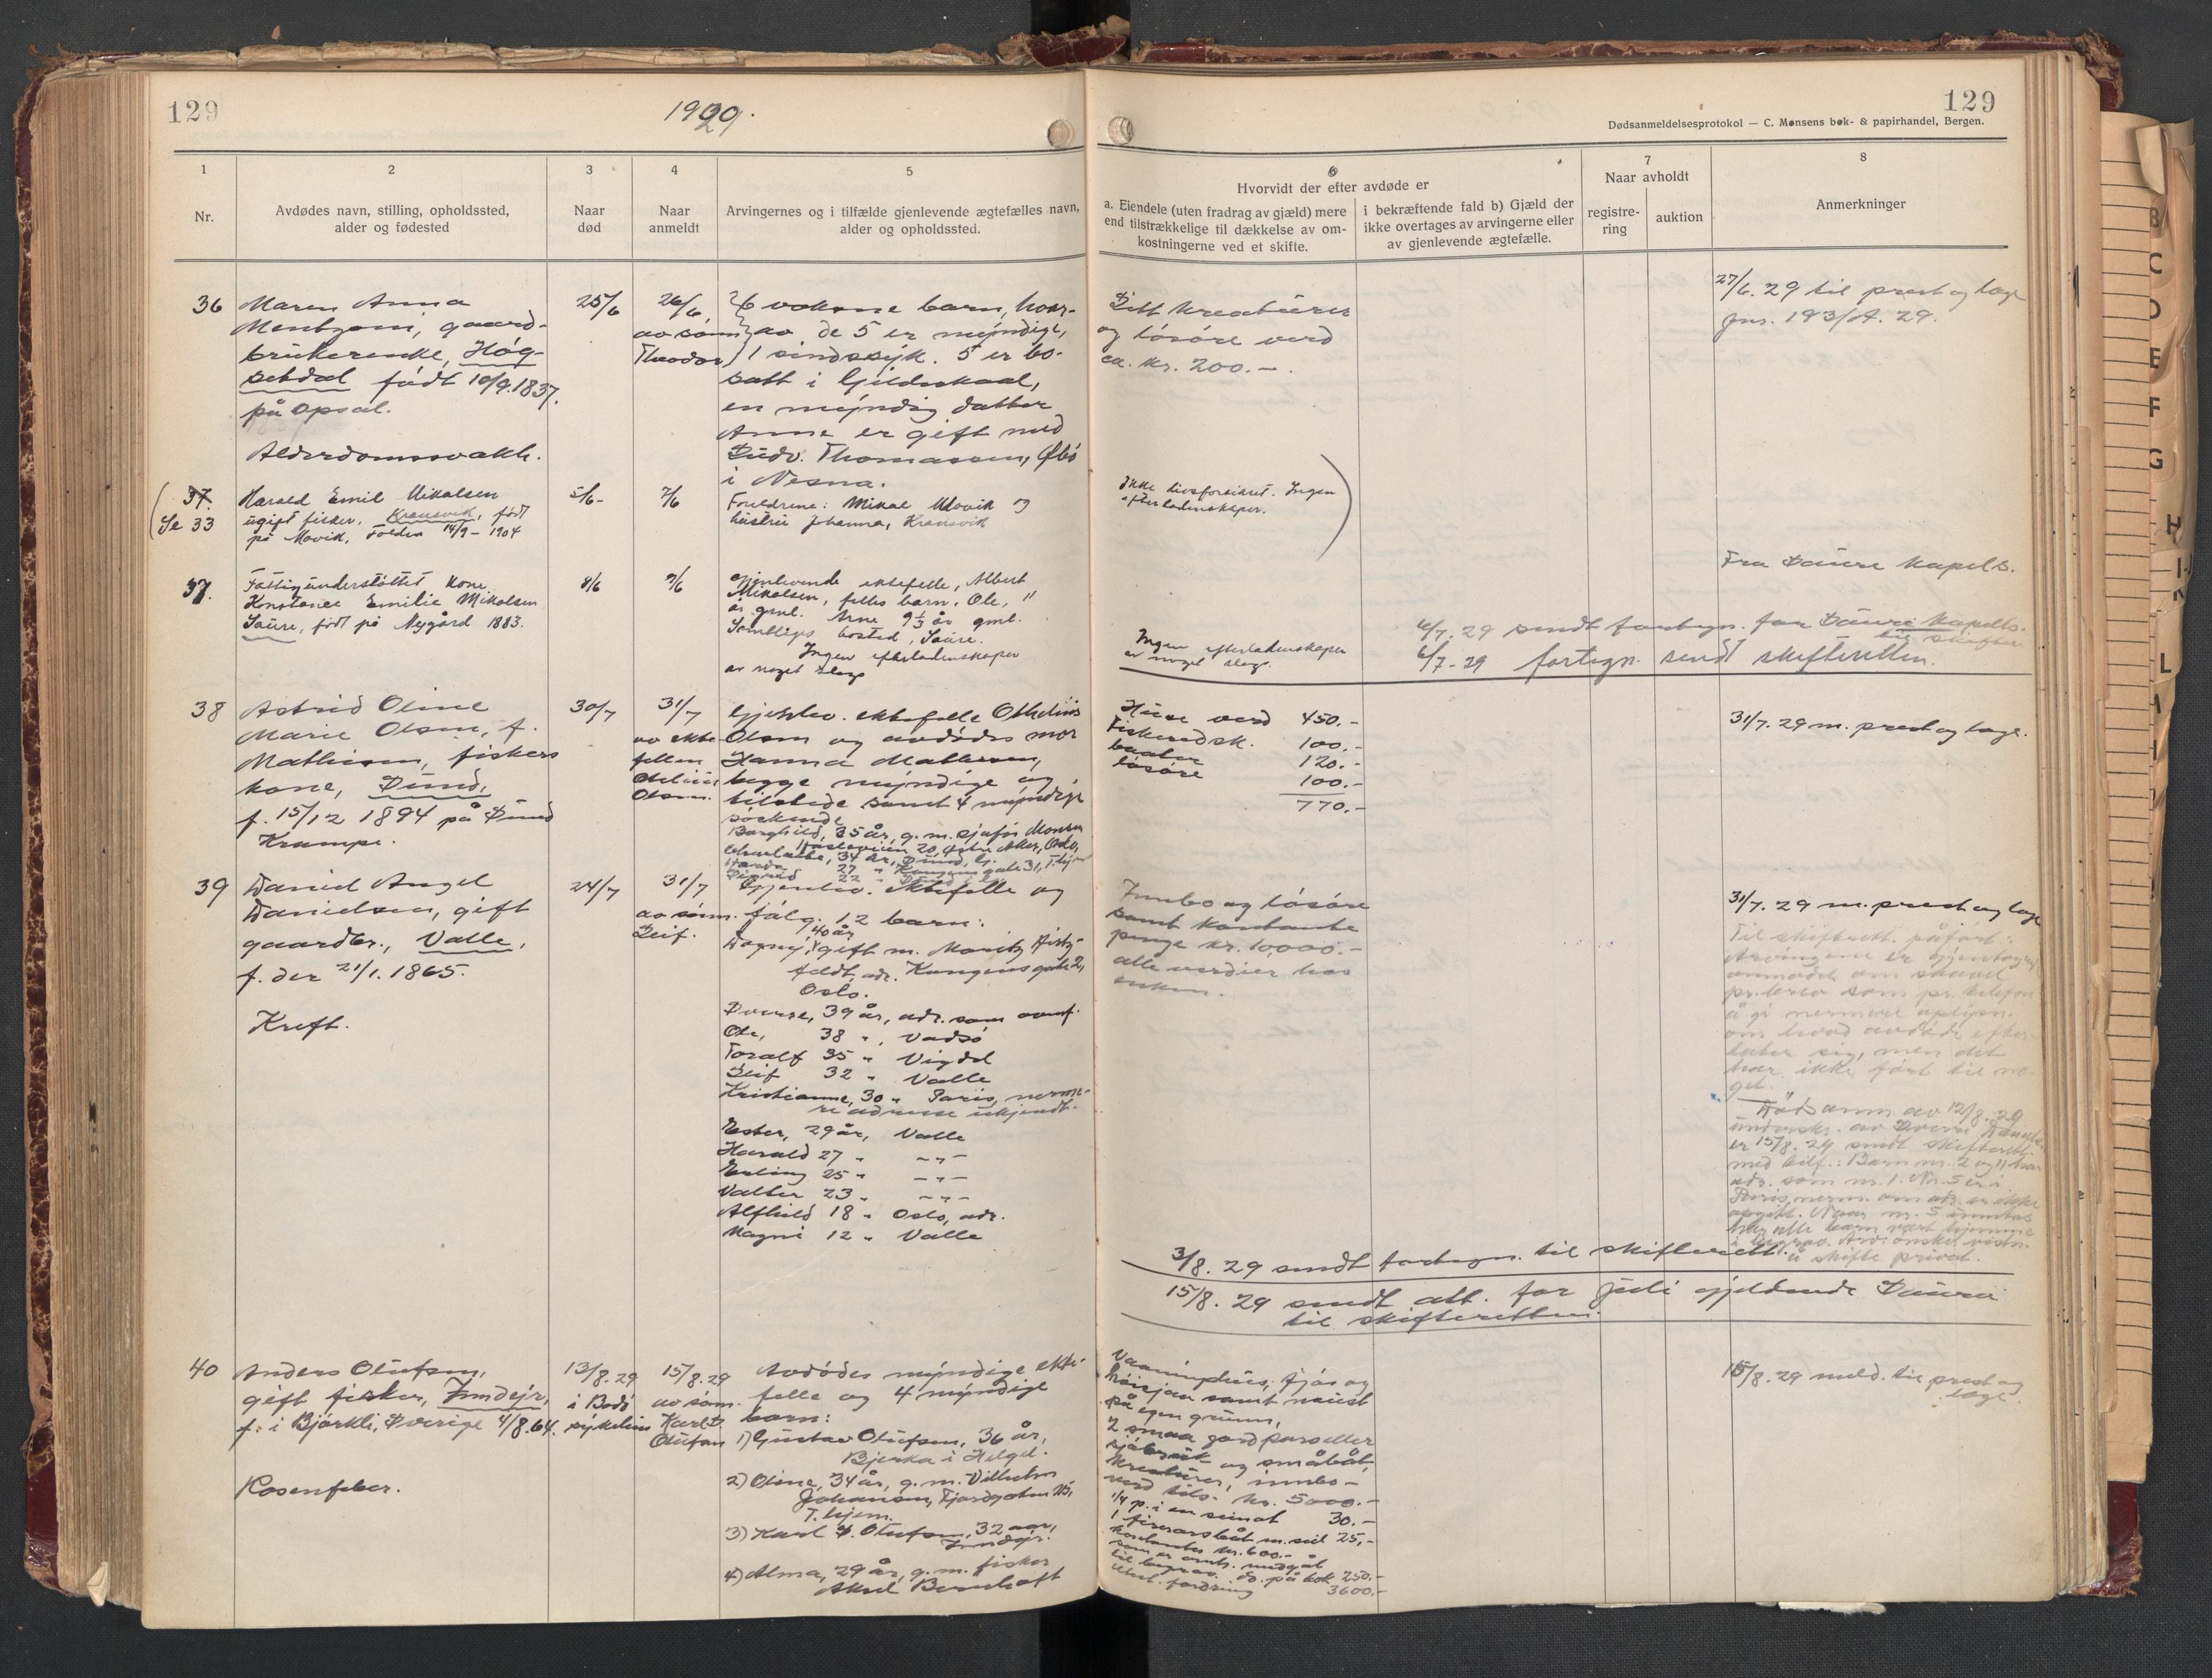 129
1929.
129
Dødsanmeldelsesprotokol — C. Monsens bok- & papirhandel, Bergen.
1
2
3
4
5
6
7
8
Nr.
Avdødes navn, stilling, opholdssted,
alder og fødested
Naar
død
Naar
anmeldt
Arvingernes og i tilfælde gjenlevende ægtefælles navn,
alder og opholdssted.
Hvorvidt der efter avdøde er
a. Eiendele (uten fradrag av gjæld) mere
end tilstrækkelige til dækkelse av om-
kostningerne ved et skifte.
i bekræftende fald b) Gjæld der
ikke overtages av arvingerne eller
av gjenlevende ægtefælle.
Naar avholdt
registre-
ring
auktion
Anmerkninger
36
Maren Anna
Mentzoni, gaard-
brukerenke, Høg-
setdal født 10/9.1837.
på Opsal.
Alderdomssvakh.
25/6
26/6
av sønn
Theodor
6 voksne barn, hvor-
av de 5 er myndige,
1 sindssyk. 5 er bo-
satt i Gildeskaal,
en myndig datter
Anna er gift med
Ludv. Thomassen, Øbø
i Nesna.
Litt kreaturer
og løsøre verd
ca. kr. 200.-.
27/6. 29 til prest og læge
Jns. 193/A. 29.
37.
Se 33
Harald Emil Mikalsen
ugift fisker, Kransvik, født
på Movik, Folden 14/9- 1904
5/6-
7/6
Foreldrene: Mikal Movik og
hustru Johanna, Kransvik
Ikke livsforsikret. Ingen
efterladenskaper.
37.
Fattigunderstøttet kone
Konstanse Emilie Mikalsen
Saure, født på Nygård 1883.
8/6
9/6
Gjenlevende ektefelle, Albert
Mikalsen, felles barn, Ole, 11
år gml. Arne 9 1/3 år gml.
Samtliges bosted, Saure.
Ingen efterladenskaper
av noget slags
Ingen efterladenskaper
av noget slags.
Fra Saura kapelld.
6/7. 29 sendt fortegn. for Saura kapells.
til skifter
6/7-29 fortegn. sendt skifteretten.
38
Astrid Oline
Marie Olsen, f.
Mathisen, fiskers
kone, Sund,
f. 15/12 1894 på Sund
Krampe.
30/7
31/7
av ekte-
fellen
Othelius
Olsen.
Gjenlev. ektefelle Othelius
Olsen og avdødes mor
Hanna Mathisen,
begge myndige og
tilstede samt 4 myndige
søskende
Borghild, 35 år, g. m. sjafør Monsen
20, Østre Aker, Oslo,
34 år, Sund, G.
27 " Kongens gate 31, T.hjem
22 " Sund i G.
Huse verd 450.-
Fiskeredsk. 100.-
baater 120.-
løsøre 100.-
770.-
31/7. 29 m. prest og læge.
39
Daniel Angel
Danielsen, gift
gaardbr., Valle,
f. der 21/1. 1865.
Kreft.
24/7
31/7
av sønn
Leif.
Gjenlev. ektefelle og
følg. 12 barn:
Dagny, 40 år gift m. Moritz
feldt, adr. Kongens gate 2,
Oslo.
Sverre, 39 år, adr. som ovenf.
Ole, 38 ", Vadsø
Toralf 35 " Vigdel
Leif 32 " Valle
Kristianne, 30 " Paris, nerme-
re adresse ukjendt.
Ester, 29 år, Valle
Harald 27 " -"-
Erling 25 " -"-
Valter 23 " -"-
Alfhild 18 " Oslo, adr.
Magni 12 " Valle
Innbo og løsøre
samt kontante
penge kr. 10,000.-
alle verdier hos
enken.
31/7. 29 m. prest og læge
Til skifterett. påført:
Arvingene er gjentagne
anmodet om såvel
pr. brev som pr. telefon
å gi nermere oplysn.
om hvad avdøde efter-
later sig, men det
har ikke ført til no-
get.
Dødsanm. av 12/8. 29
underskr. av Sverre Daniels.
er 15/8. 29 sendt skifterett.
med tilf.: Barn nr. 2 og 11 har
adr. som nr. 1. Nr. 5 er i
Paris, nerm. om adr. er ikke
opgitt. Naar nr. 5 unntas
har alle barn vært hjemme
i begrav. Arv. ønsker
å skifte privat.
3/8. 29 sendt fortegn. til skifterett.
15/8. 29 sendt att. for juli gjeldende Saura
til skifteretten.
40
Anders Olufsen,
gift fisker, Inndejr,
f. i Björkli, Sverige 4/8.64.
Rosenfeber.
13/8. 29
i Bodø
sykehus
15/8. 29
av sønn
Karl
Olufsen
Avdødes myndige ekte-
felle og 4 myndige
barn:
1) Gustav Olufsen, 36 år,
Bjerka i Helgel.
2) Oline, 34 år, g. m. Vilhelm
Johansen, Fjordgaten 25,
T.hjem.
3) Karl Olufsen, 32 aar,
Inndejr.
4) Alma, 29 år, g. m. fisker
Aksel Bernhoft
Vaaningshus, fjøs og
høisjaa samt naust
på egen grunn,
2 smaa jordparseller
sjøbruk og småbåt,
kreaturer, innbo -
verd tils. kr. 5000.-
1/4 p. i en seinot 30.-
1 firerorsbåt m. seil 25,-
kontanter kr. 600.-
som er omtr. medgåt
til begrav. do. på bok 250.-
fordring 3600.-
15/8. 29 meld. til prest og
læge.
B
C
D
E
F
G
H
L